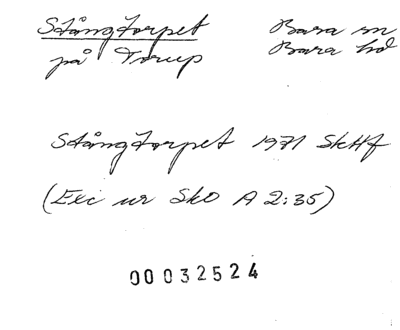 Stångtorpet Bara sn
på Torup Bara hd
Stångtorpet 1971 SkHf
(Exc ur Sko A 2:35)
00032524